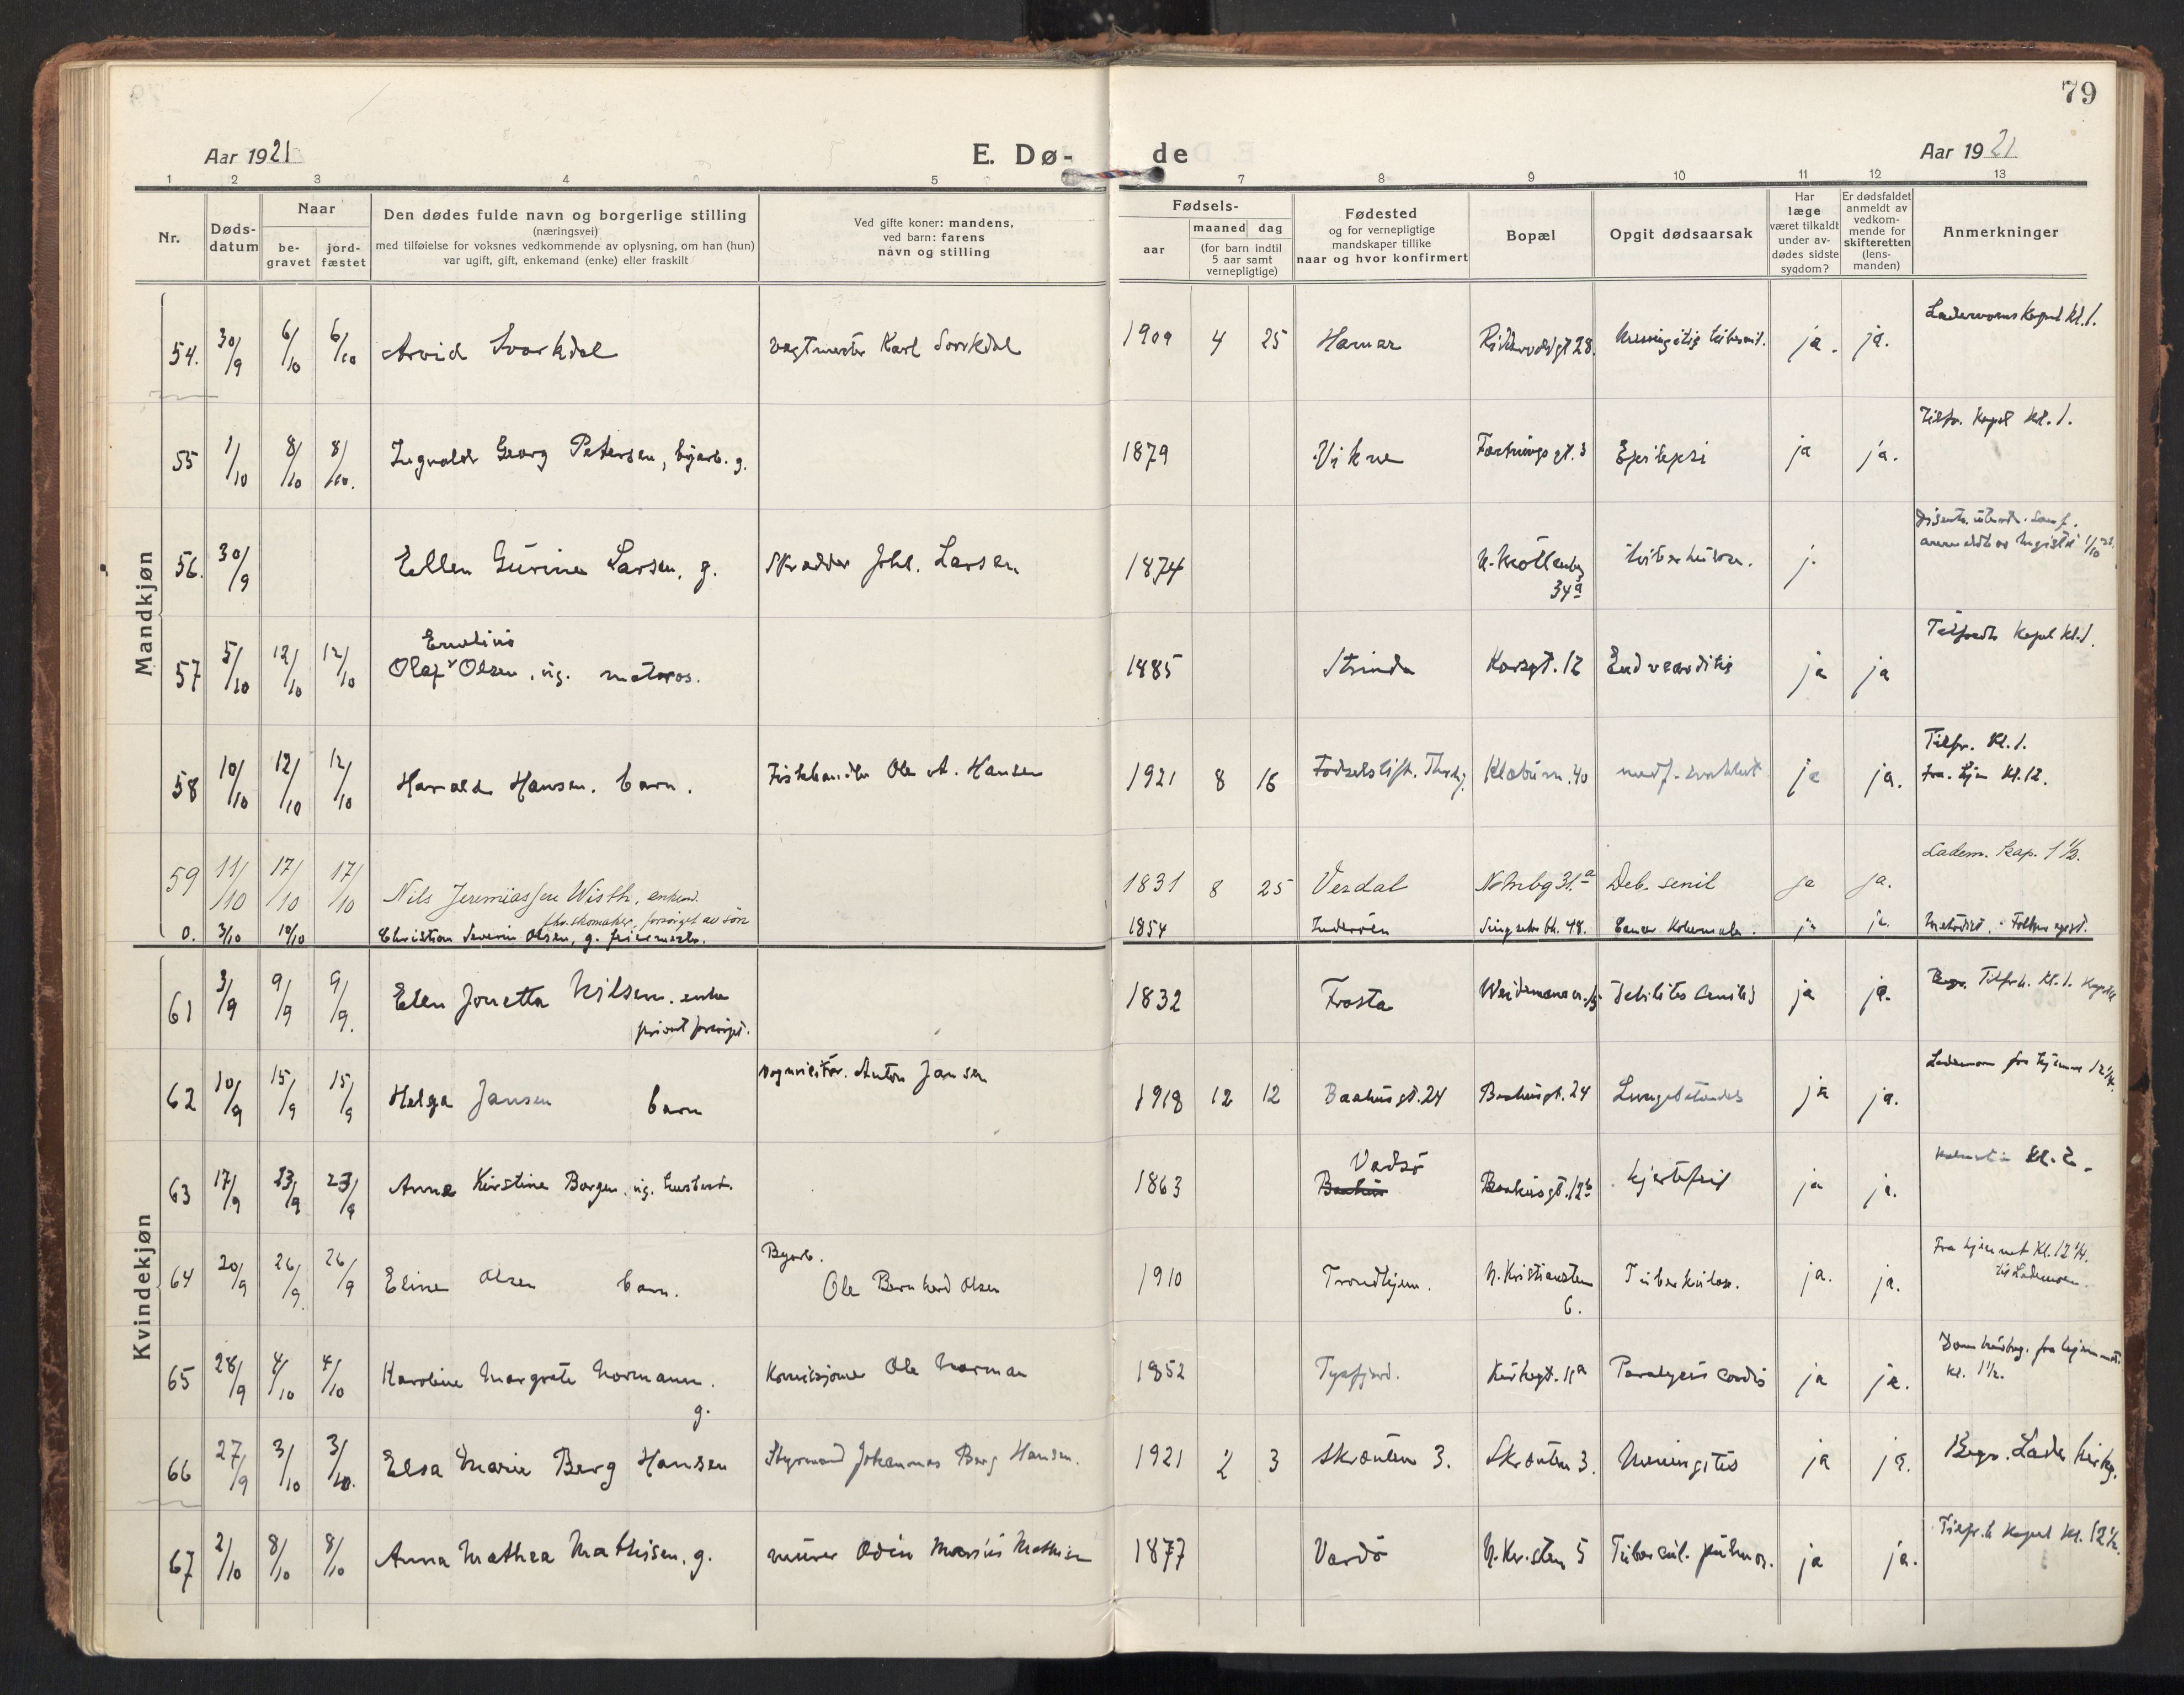 79
Aar 1921
E. Dø-
de
Aar 1921
1 2 3 4 5 7 8 9 10 11 12 13
Nr.
Døds-
datum
Naar
be-
gravet
jord-
fæstet
Den dødes fulde navn og borgerlige stilling
(næringsvei)
med tilføielse for voksnes vedkommende av oplysning, om han (hun)
var ugift, gift, enkemand (enke) eller fraskilt
Ved gifte koner: mandens,
ved barn: farens
navn og stilling
Fødsels-
aar
maaned dag
(for barn indtil
5 aar samt
vernepligtige)
Fødested
og for vernepligtige
mandskaper tillike
naar og hvor konfirmert
Bopæl
Opgit dødsaarsak
Har
læge
været tilkaldt
under av-
dødes sidste
sygdom?
Er dødsfaldet
anmeldt av
vedkom-
mende for
skifteretten
(lens-
manden)
Anmerkninger
Mandkjøn
54. 30/9 6/10 6/10 Arvid Svorkdal Karl 1909 4 25 Hamar ja. ja. Kl. 1.
55 1/10 8/10 8/10. Ingvald Georg Petersen, byarb. g. 1879 Vikne Epilepsi ja ja. Kapel Kl. 1.
56. 30/9 Ellen Gurine Larsen, g. Skrædder Johl. Larsen 1874 34a j.
Emelius
57 5/10 12/10 12/10 Olaf Olsen, ug. matros. 1885 Strinda Korsgt. 12 ja ja Kapel Kl. 1.
58 10/10 12/10 12/10 Harald Hansen. barn. Fiskehandler Ole A. Hansen 1921 8 16 Fødselsstift. ja ja. Tilfr. Kl. 1.
fra Kl. 12.
59 11/10 17/10 17/10 Nils Jeremiassen Wisth, enkem. 1831 8 25 Verdal Deb. senil ja ja. Ladem. Kap. 1 1/2.
fhv. skomaker, forsørget av søn
0. 3/10 10/10 Christian Severin Olsen, g. 1854 Inderøen 48. ja ja.
Kvindekjøn
61 3/9 9/9 9/9. Elen Jonetta Nilsen. enke 1832 Frosta Debilitas senilis ja ja. Kl. 1.
privat forsørget.
62 10/9 15/9 15/9 Helga Jansen barn Anton Jansen 1918 12 12 Baahusgt. 24 Baahusgt. 24 ja ja.
63 17/9 23/9 23/9 Anna Kirstine Borgen, ug. 1863 Vadsö Baahusgt. 12b hjertefeil ja ja. Kl. 2.
64 20/9 26/9. 26/9 Eline Olsen barn. Byarb.
Ole Bernhard Olsen 1910 Trondhjem. N. Kristiansten
6. Tuberkulose. ja. ja. Fra hjemmet Kl. 12 1/4.
65 28/9 4/10 4/10 Karoline Margrete Normann.
g. Ole Norman 1852 Tysfjord. Paralysis cordis ja ja. fra hjemmet
kl. 1 1/2.
66 27/9 3/10 3/10. Elsa Marie Berg Hansen Styrmand Johannes Berg Hansen. 1921 2 3 Skrænten 3. Skrænten 3. Meningitis ja ja. Begr. Lade kirkg.
67 2/10 8/10 8/10 Anna Mathea Mathisen, g. murer Odin Marius Mathisen 1877 Vardö N. Kr.sten 5 Tubercul. pulmon. ja ja. Kapel Kl. 12 1/2.